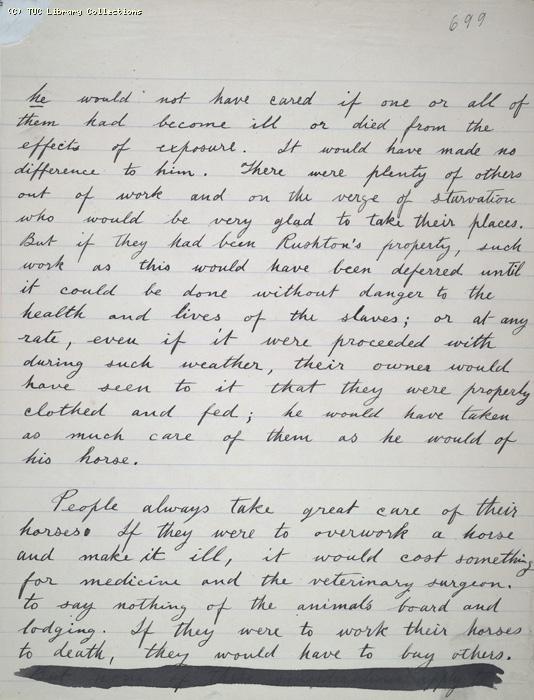 (C) TUC Library Collections
699
he would not have cared if one or all of
them had become ill or died from the
effects of exposure. It would have made no
difference to him. There were plenty of others
out of work and on the verge of starvation
who would be very glad to take their places.
But if they had been Rushton's property, such
work as this would have been deferred until
it could be done without danger to the
health and lives of the slaves; or at any
rate, even if it were proceeded with
during such weather, their owner would
have seen to it that they were properly
clothed and fed; he would have taken
as much care of them as he would of
his horse.
People always take great care of their
horses. If they were to overwork a horse
and make it ill, it would cost something
for medicine and the veterinary surgeon.
to say nothing of the animals board and
lodging. If they were to work their horses
to death, they would have to buy others.